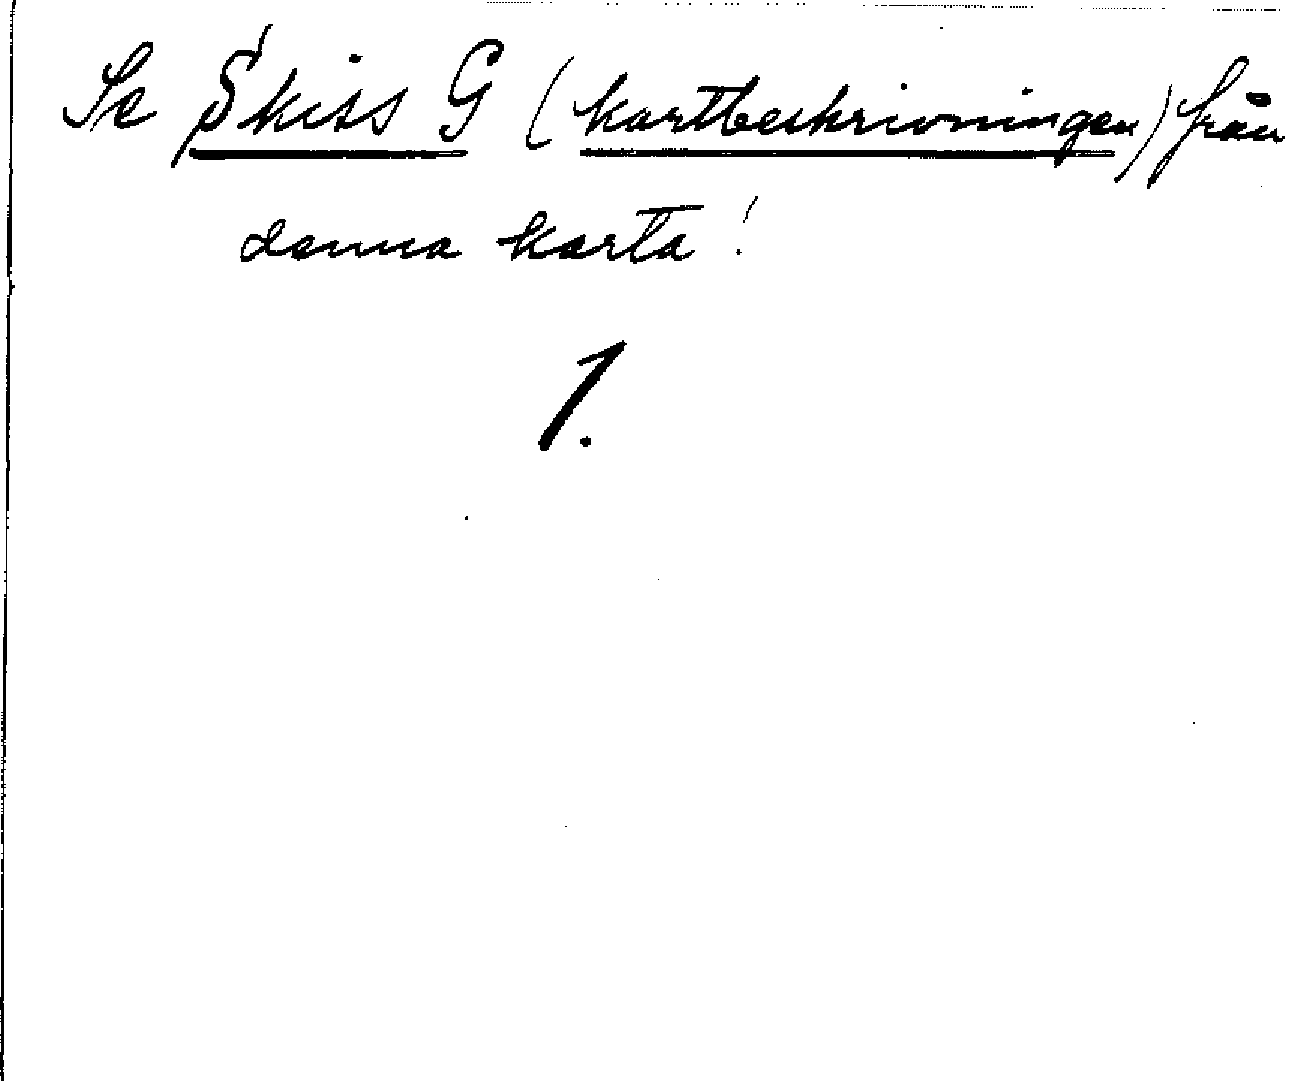 Se Skiss G (kartbeskrivningen) från
denna karta!
1.